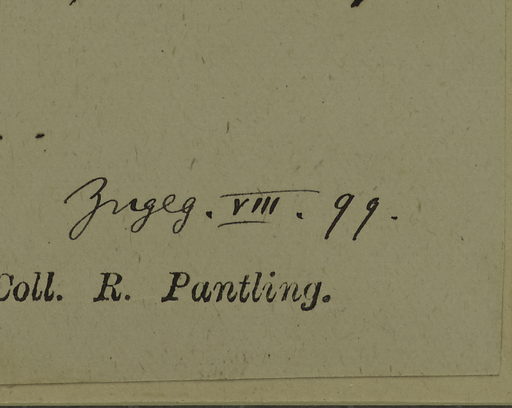 Zugeg. VIII. 99.
Coll. R. Pantling.